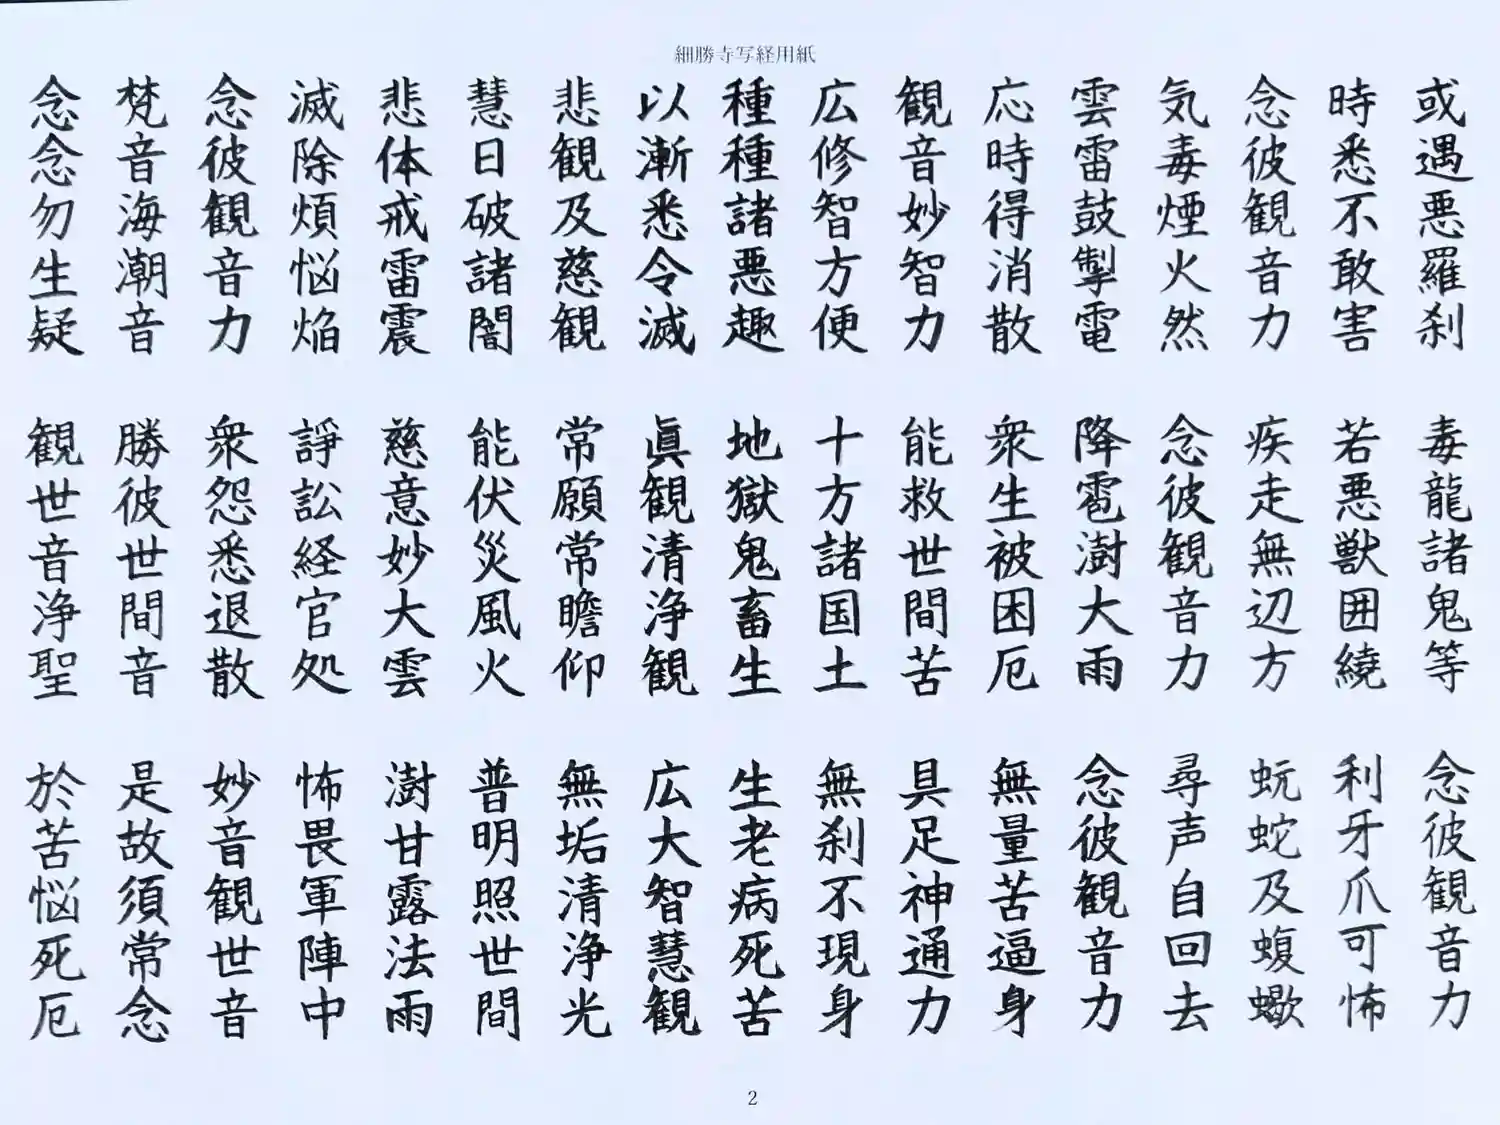 細勝寺写経用紙
或遇悪羅刹 毒龍諸鬼等 念彼観音力
時悉不敢害 若悪獣囲繞 利牙爪可怖
念彼観音力 疾走無辺方 蚖蛇及蝮蠍
気毒煙火然 念彼観音力 尋声自回去
雲雷鼓掣電 降雹澍大雨 念彼観音力
応時得消散 衆生被困厄 無量苦逼身
観音妙智力 能救世間苦 具足神通力
広修智方便 十方諸国土 無刹不現身
種種諸悪趣 地獄鬼畜生 生老病死苦
以漸悉令滅 眞観清浄観 広大智慧観
悲観及慈観 常願常瞻仰 無垢清浄光
慧日破諸闇 能伏災風火 普明照世間
悲体戒雷震 慈意妙大雲 澍甘露法雨
滅除煩悩焔 諍訟経官処 怖畏軍陣中
念彼観音力 衆怨悉退散 妙音観世音
梵音海潮音 勝彼世間音 是故須常念
念念勿生疑 観世音浄聖 於苦悩死厄
2